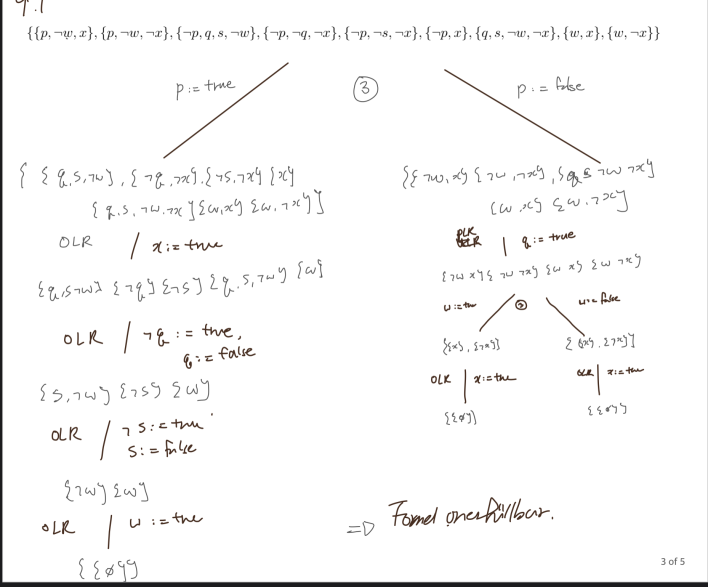 4.1
{{p, ¬w, x}, {p, ¬w, ¬x}, {¬p, q, s, ¬w}, {¬p, ¬q, ¬x}, {¬p, ¬s, ¬x}, {¬p, x}, {q, s, ¬w, ¬x}, {w, x}, {w, ¬x}}
p := true
3
p := false
{ {q,s,¬w}, {¬q,¬x}, {¬s,¬x} {x}
{q,s,¬w,¬x} {w,x} {w,¬x} }
OLR
x := true
{q,s¬w} {¬q} {¬s} {q,s,¬w} {w}
OLR
¬q := true,
q := false
{s,¬w} {¬s} {w}
OLR
¬s := true
s := false
{¬w} {w}
OLR
w := true
{{ø}}
{{¬w,x} {¬w,¬x}, {q s ¬w ¬x}
{w,x} {w,¬x}
PLR
q := true
{¬w x} {¬w ¬x} {w x} {w ¬x}
w := true
2
w := false
{{x}, {¬x}}
{{x}, {¬x}}
OLR
x := true
OLR
x := true
{{ø}}
{{ø}}
=>
Formel unerfüllbar.
3 of 5